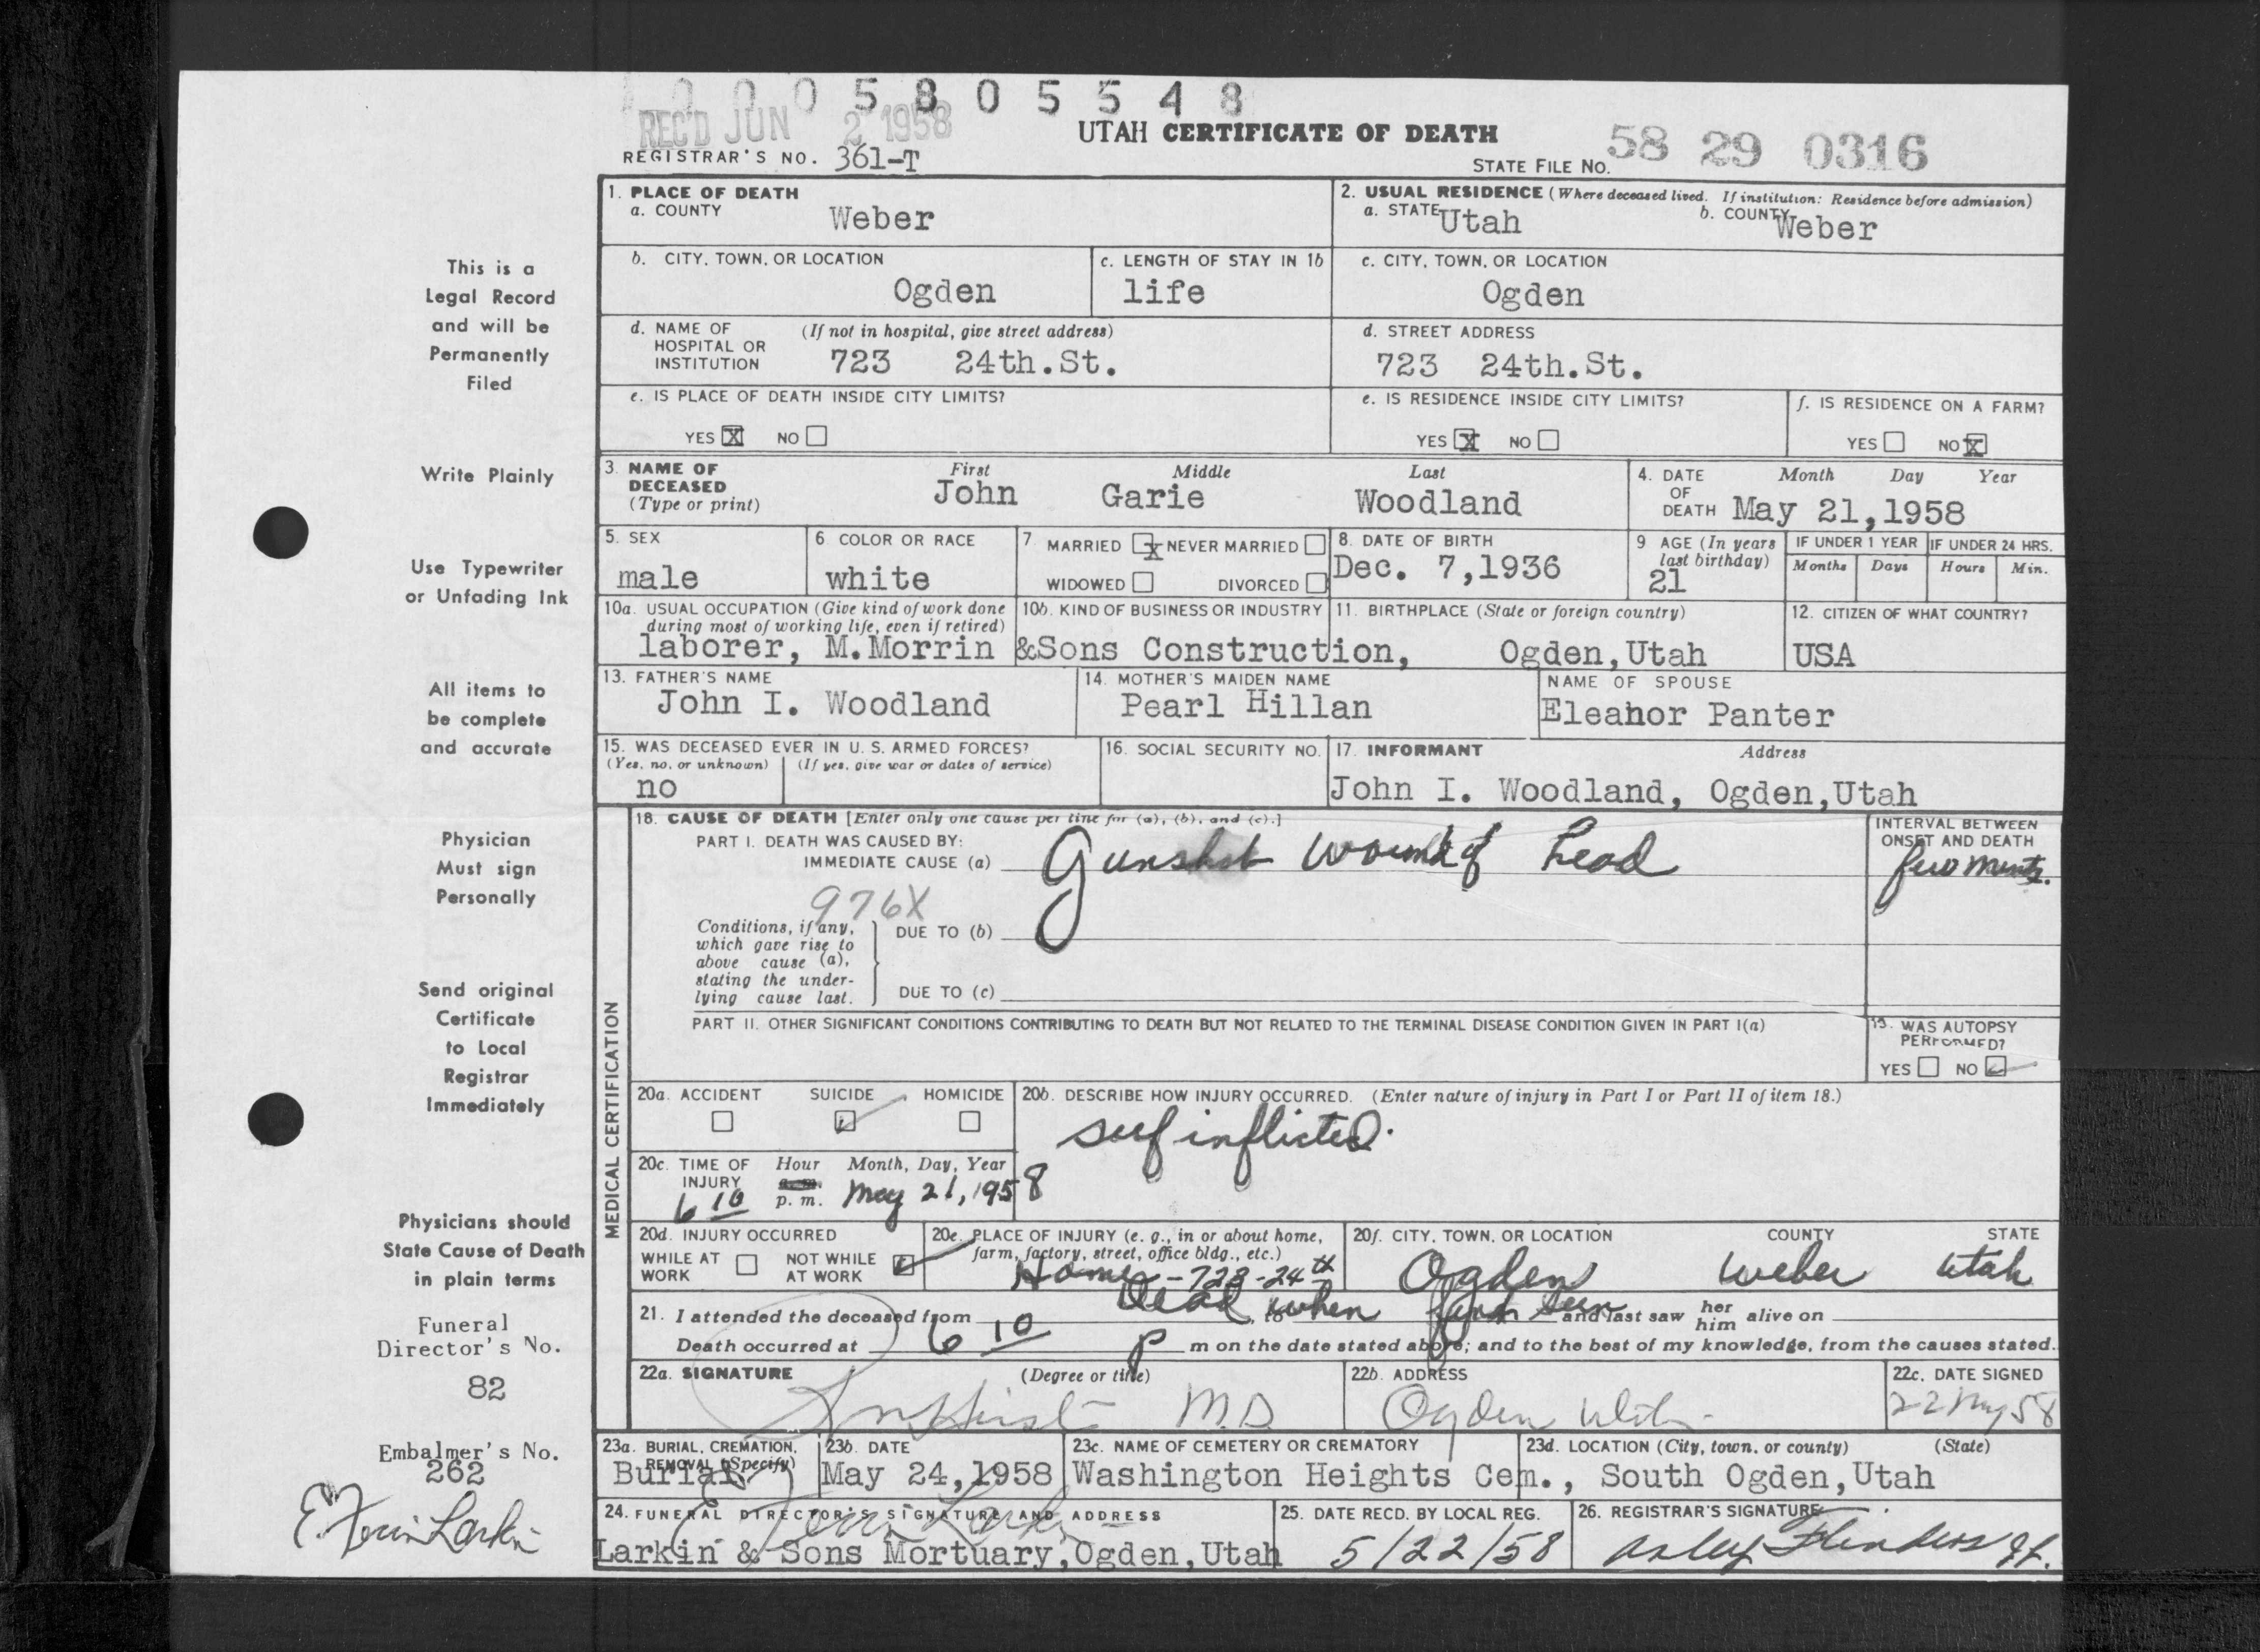 0 0 0 5 8 0 5 5 4 8
REC'D JUN 2 1958
UTAH CERTIFICATE OF DEATH
REGISTRAR'S NO. 361-T
STATE FILE NO. 58 29 0316
1. PLACE OF DEATH
a. COUNTY Weber
2. USUAL RESIDENCE (Where deceased lived. If institution: Residence before admission)
a. STATE Utah b. COUNTY Weber
b. CITY, TOWN, OR LOCATION Ogden
c. LENGTH OF STAY IN 1b life
c. CITY, TOWN, OR LOCATION Ogden
d. NAME OF HOSPITAL OR INSTITUTION (If not in hospital, give street address) 723 24th.St.
d. STREET ADDRESS 723 24th.St.
e. IS PLACE OF DEATH INSIDE CITY LIMITS?
YES X NO
e. IS RESIDENCE INSIDE CITY LIMITS?
YES X NO
f. IS RESIDENCE ON A FARM?
YES NO X
3. NAME OF DECEASED (Type or print)
First Middle Last
John Garie Woodland
4. DATE OF DEATH Month Day Year
May 21,1958
5. SEX male
6 COLOR OR RACE white
7 MARRIED X NEVER MARRIED
WIDOWED DIVORCED
8. DATE OF BIRTH Dec. 7,1936
9 AGE (In years last birthday) 21
IF UNDER 1 YEAR Months Days
IF UNDER 24 HRS. Hours Min.
10a. USUAL OCCUPATION (Give kind of work done during most of working life, even if retired)
10b. KIND OF BUSINESS OR INDUSTRY
laborer, M.Morrin &Sons Construction,
11. BIRTHPLACE (State or foreign country) Ogden,Utah
12. CITIZEN OF WHAT COUNTRY? USA
13. FATHER'S NAME John I. Woodland
14. MOTHER'S MAIDEN NAME Pearl Hillan
NAME OF SPOUSE Eleanor Panter
15. WAS DECEASED EVER IN U. S. ARMED FORCES?
(Yes, no, or unknown) (If yes, give war or dates of service)
no
16. SOCIAL SECURITY NO.
17. INFORMANT Address
John I. Woodland, Ogden,Utah
MEDICAL CERTIFICATION
18. CAUSE OF DEATH [Enter only one cause per line for (a), (b), and (c).]
PART I. DEATH WAS CAUSED BY:
IMMEDIATE CAUSE (a) Gunshot wound of head
INTERVAL BETWEEN ONSET AND DEATH
few
976X
Conditions, if any, which gave rise to above cause (a), stating the underlying cause last.
DUE TO (b)
DUE TO (c)
PART II. OTHER SIGNIFICANT CONDITIONS CONTRIBUTING TO DEATH BUT NOT RELATED TO THE TERMINAL DISEASE CONDITION GIVEN IN PART I(a)
19. WAS AUTOPSY PERFORMED?
YES NO
20a. ACCIDENT SUICIDE HOMICIDE
20b. DESCRIBE HOW INJURY OCCURRED. (Enter nature of injury in Part I or Part II of item 18.)
self inflicted.
20c. TIME OF INJURY Hour Month, Day, Year
6 10 a.m. p. m. May 21, 1958
20d. INJURY OCCURRED
WHILE AT WORK NOT WHILE AT WORK
20e. PLACE OF INJURY (e. g., in or about home, farm, factory, street, office bldg., etc.)
Home - 723 - 24th
20f. CITY, TOWN, OR LOCATION COUNTY STATE
Ogden Weber Utah
21. I attended the deceased from Dead to when first seen and last saw her him alive on
Death occurred at 6 10 P m on the date stated above; and to the best of my knowledge, from the causes stated.
22a. SIGNATURE (Degree or title)
M.D.
22b. ADDRESS
Ogden Utah
22c. DATE SIGNED
22 May 58
23a. BURIAL, CREMATION, REMOVAL (Specify) Burial
23b. DATE May 24,1958
23c. NAME OF CEMETERY OR CREMATORY Washington Heights Cem.,
23d. LOCATION (City, town, or county) (State) South Ogden,Utah
24. FUNERAL DIRECTOR'S SIGNATURE AND ADDRESS
Larkin & Sons Mortuary,Ogden,Utah
25. DATE RECD. BY LOCAL REG.
5/22/58
26. REGISTRAR'S SIGNATURE
Flinders
This is a
Legal Record
and will be
Permanently
Filed
Write Plainly
Use Typewriter
or Unfading Ink
All items to
be complete
and accurate
Physician
Must sign
Personally
Send original
Certificate
to Local
Registrar
Immediately
Physicians should
State Cause of Death
in plain terms
Funeral
Director's No.
82
Embalmer's No.
262
E. Larkin